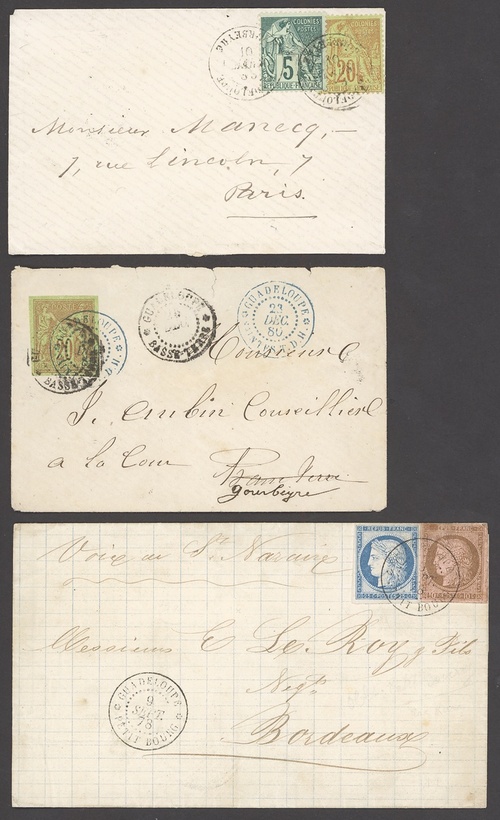 COLONIES
POSTES
5
RÉPUBLIQUE FRANÇAISE
20
Monsieur Manecq,—
7, rue Lincoln, 7
Paris.
20
GUADELOUPE
BASSE-TERRE
GUADELOUPE
23
DEC.
80
Monsieur
J. Ambin Conseiller
a la Cour
gourbeyre
Voie de St Nazaire
REPUB. FRANC.
REPUB. FRANC.
PETIT BOURG
Messieurs E Le Roy & Fils
Negts
Bordeaux
GUADELOUPE
9
SEPT.
78
PETIT BOURG